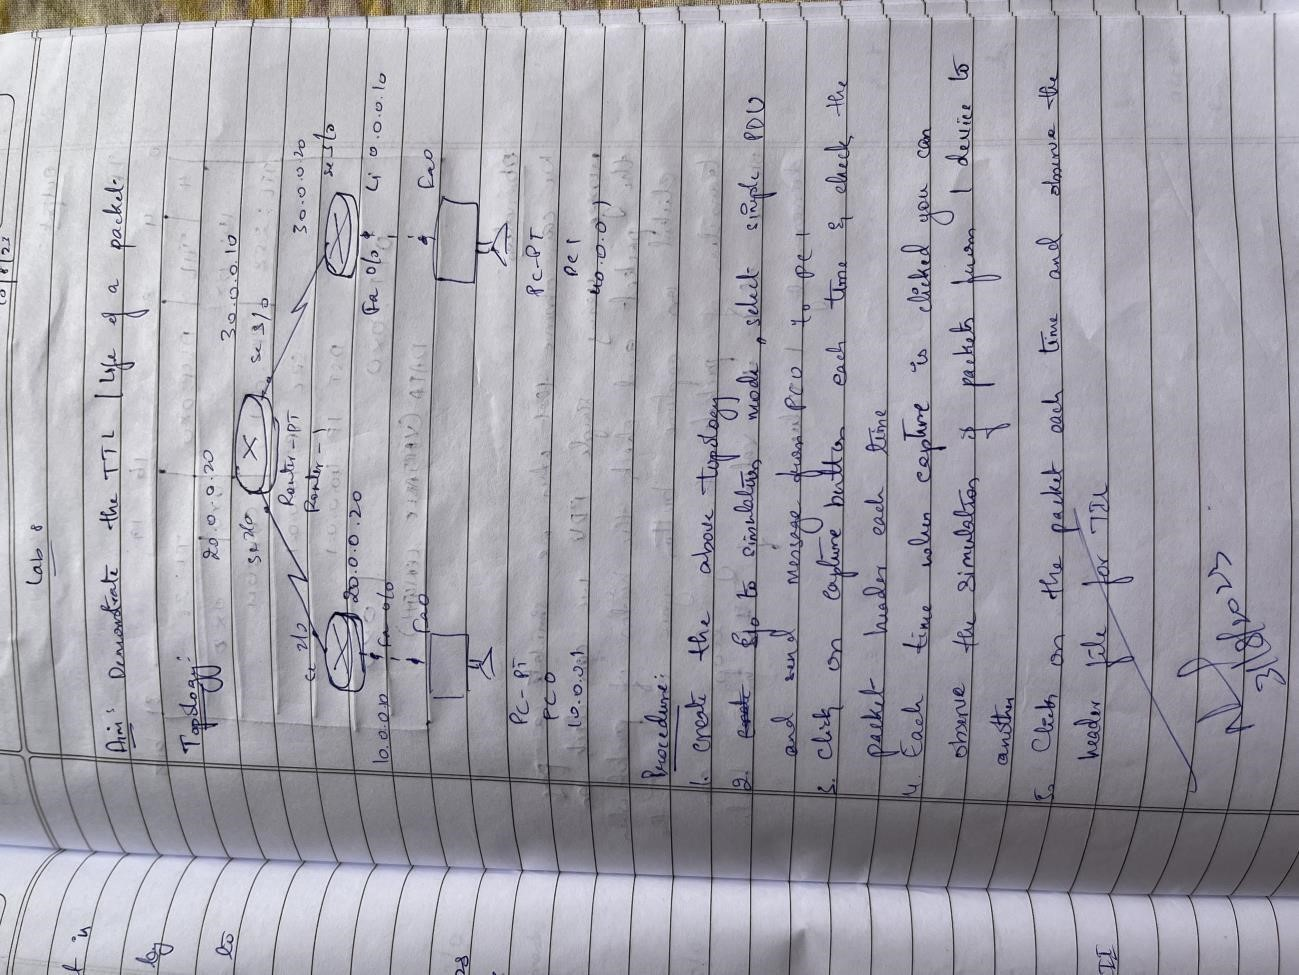 Lab 8
Aim: Demonstrate the TTL / Life of a packet.
Topology:
20.0.0.20
30.0.0.10
30.0.0.20
se 2/0
se 3/0
se 3/0
Router-PT
Router-1
se 2/0
20.0.0.20
10.0.0.10
Fa 0/0
Fa 0/0
40.0.0.10
Fa0
Fa0
PC-PT
PC0
10.0.0.1
PC-PT
PC1
40.0.0.1
Procedure:
1. create the above topology
2. Go to simulation mode, select simple PDU
and send message from PC0 to PC1
3. Click on capture button each time & check the
packet header each time
4. Each time when capture is clicked you can
observe the simulation of packets from 1 device to
another
5. Click on the packet each time and observe the
header file for TTL